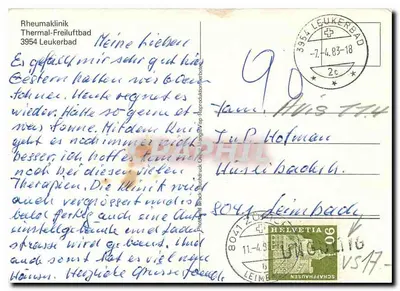 Rheumaklinik
Thermal-Freiluftbad
3954 Leukerbad
Meine Lieben
Es gefällt mir sehr gut hier
Gestern hatten wir 6 cm
Schnee. Heute regnet es
wieder. Hätte so gerne et-
was Sonne. Mit dem Knie
geht es noch nicht
besser, ich hoffe
noch bei diesen vielen
Therapien. Die Klinik wird
auch vergrössert und ist
bald fertig auch eine Auto-
einstellhalle und
strasse wird gebaut. Und
auch sonst hat es viel neue
Häuser. Herzliche Grüsse
3954 LEUKERBAD
-7.-4.83-18
2c
90
Fam.
J. u. P. Hofmann
8041 Leimbach
8041
11.-4.
LEIMBACH
HELVETIA
90
SCHAFFHAUSEN
UNGÜLTIG